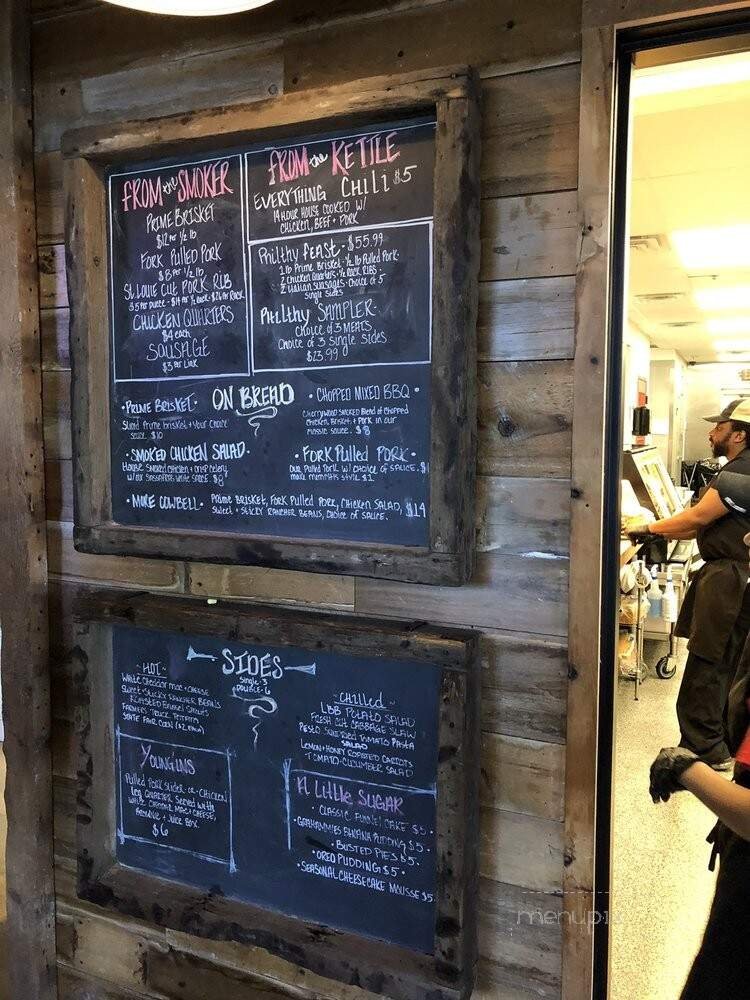 FROM the SMOKER
PRIME BRISKET
$12 Per 1/2 lb
FORK PULLED PORK
$8 Per 1/2 lb
St. LOUIE CUT PORK RIB
CHICKEN QUARTERS
$4 each
SAUSAGE
$3 Per Link
FROM the KETTLE
EVERYTHING CHILI $5
14 HOUR HOUSE COOKED W/
CHICKEN, BEEF + PORK
PHILTHY FEAST - $55.99
1 lb Prime Brisket - 1/2 lb Pulled Pork
2 Chicken Quarters - 1/2 Rack RIBS -
2 Italian Sausages - Choice of 5
Single Sides
PHILTHY SAMPLER -
Choice of 3 MEATS
Choice of 3 single sides
$23.99
ON BREAD
• PRIME BRISKET •
Sliced Prime brisket + your choice
sauce. $10
• CHOPPED MIXED BBQ •
Cherrywood Smoked Blend of Chopped
Chicken, Brisket + Pork in our
sauce. $8
• SMOKED CHICKEN SALAD •
House Smoked chicken + crisp celery
w/ our white sauce $8
• FORK PULLED PORK •
Our Pulled Pork w/ choice of sauce.
make memphis style $1
• MORE COWBELL • Prime BRISKET, FORK Pulled PORK, CHICKEN SALAD, $14
Sweet + Sticky RANCHER BEANS, CHOICE OF SAUCE.
SIDES
Single-3
Double-6
~ HOT ~
White Cheddar Mac + Cheese
Sweet + Sticky RANCHER BEANS
ROASTED Brussel Sprouts
FARMERS TRUCK
STATE FAIR CORN
~ Chilled ~
LBB POTATO SALAD
FRESH CUT CABBAGE SLAW
PESTO SUNDRIED TOMATO PASTA
SALAD
LEMON + HONEY ROASTED CARROTS
• TOMATO-CUCUMBER SALAD
YOUNGINS
Pulled PORK Slider -or- CHICKEN
Leg QUARTER SERVED WITH
WHITE CHEDDAR MAC + CHEESE,
+ JUICE BOX.
$6
A Little SUGAR
• CLASSIC FUNNEL CAKE $5 •
• GRAHAMMIES BANANA PUDDING $5 •
• BUSTED PIES $5 •
• OREO PUDDING $5 •
• SEASONAL CHEESECAKE MOUSSE $5